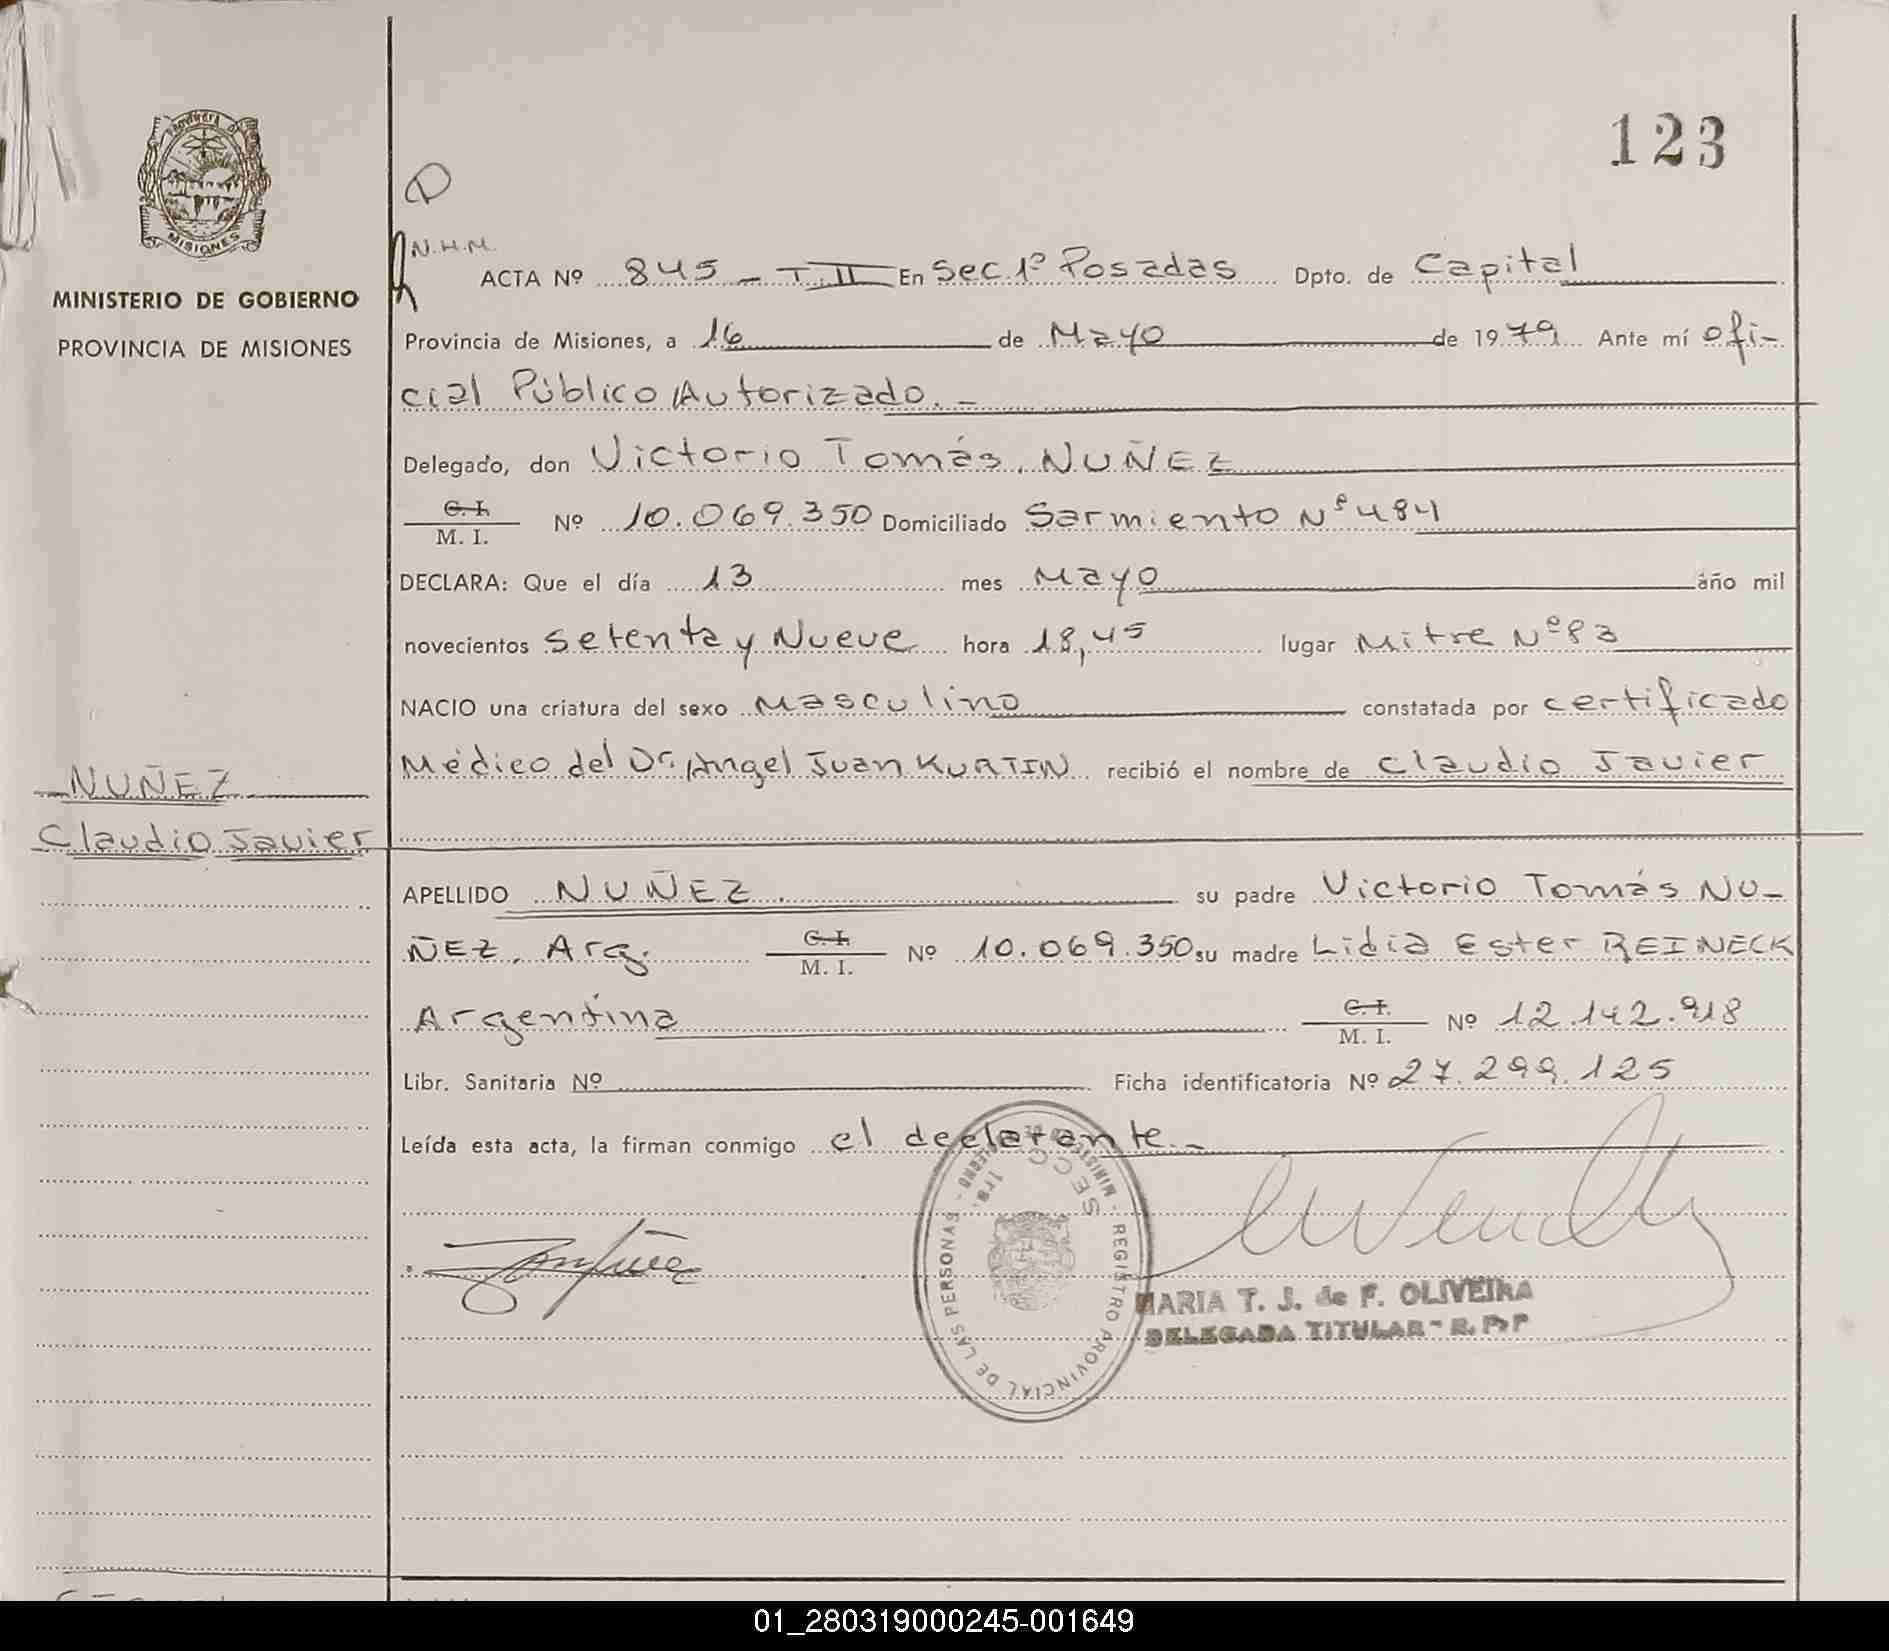 123
PROVINCIA D
MISIONES
MINISTERIO DE GOBIERNO
PROVINCIA DE MISIONES
N.H.M.
ACTA Nº 845 - T. II En Sec. 1º Posadas Dpto. de Capital
Provincia de Misiones, a 16 de Mayo de 1979 Ante mí ofi-
cial Público Autorizado. -
Delegado, don Victorio Tomás NUÑEZ
C. I.
M. I. Nº 10.069.350 Domiciliado Sarmiento Nº 484
DECLARA: Que el día 13 mes Mayo año mil
novecientos setenta y Nueve hora 18,45 lugar Mitre Nº 83
NACIO una criatura del sexo Masculino constatada por certificado
Médico del Dr. Angel Juan KURTIN recibió el nombre de Claudio Javier
NUÑEZ
Claudio Javier
APELLIDO NUÑEZ. su padre Victorio Tomás NU-
ÑEZ, Arg. C. I.
M. I. Nº 10.069.350 su madre Lidia Ester REINECK
Argentina C. I.
M. I. Nº 12.142.918
Libr. Sanitaria Nº Ficha identificatoria Nº 27.299.125
Leída esta acta, la firman conmigo el declarante. -
REGISTRO PROVINCIAL DE LAS PERSONAS - MINISTERIO DE GOBIERNO -
SECC. 1ra.
MARIA T. J. de F. OLIVEIRA
DELEGADA TITULAR - R. P. P
01_280319000245-001649